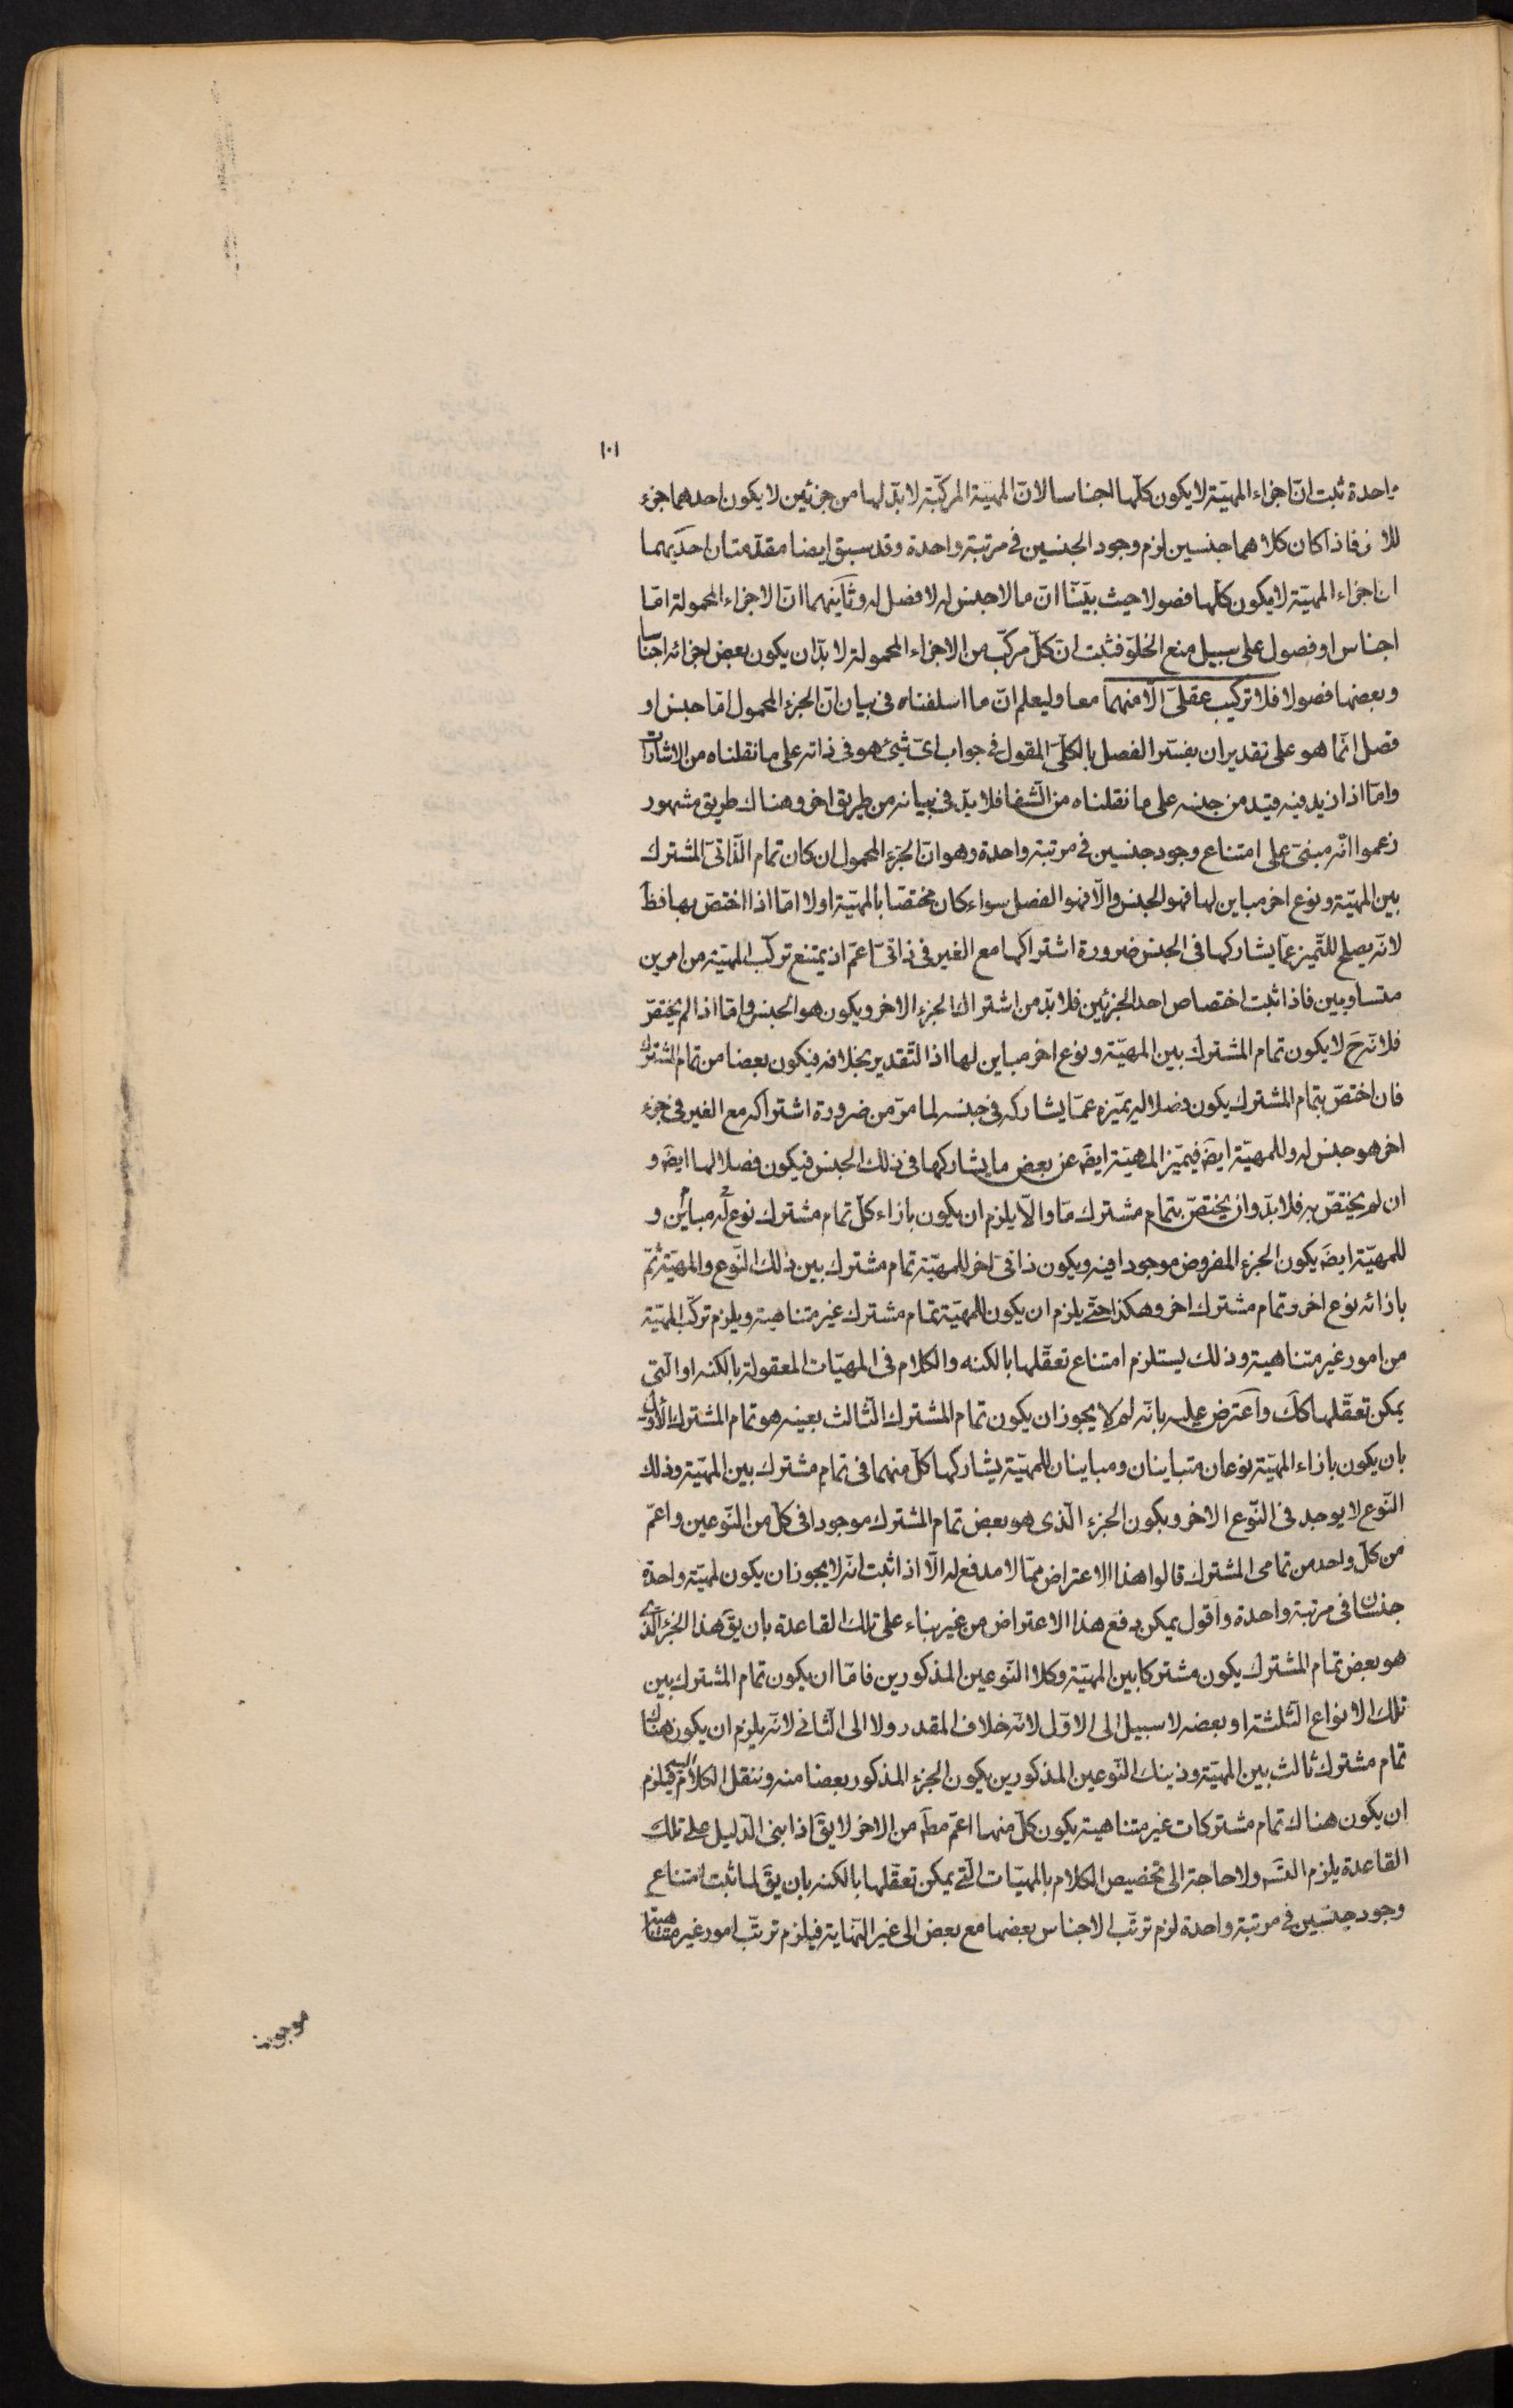 ١٠١
واحدة ثبت انّ اجزاء المهيّة لا يكون كلّها اجناسا لانّ المهيّة المركّبة لا بدّ لها من جزئين لا يكون احدهما جزء
للاخر فاذا كان كلاهما جنسين لزم وجود الجنسين فى مرتبة واحدة وقد سبق ايضا مقدّمتان احديهما
ان اجزاء المهيّة لا يكون كلّها فصولا حيث بيّنّا انّ ما لا جنس له لا فصل له وثانيهما انّ الاجزاء المحمولة امّا
اجناس او فصول على سبيل منع الخلوّ فثبت انّ كلّ مركّب من الاجزاء المحمولة لا بدّ ان يكون بعض اجزائه اجناسا
وبعضها فصولا فلا تركيب عقلىّ الّا منهما معا وليعلم انّ ما اسلفناه فى بيان انّ الجزء المحمول امّا جنس او
فصل انّما هو على تقدير ان يفسّر الفصل بالكلّىّ المقول فى جواب اىّ شىء هو فى ذاته على ما نقلناه من الاشارات
وامّا اذا زيد فيه قيد من جنسه على ما نقلناه من الشّفا فلا بدّ فى بيانه من طريق اخر وهناك طريق مشهور
زعموا انّه مبنىّ على امتناع وجود جنسين فى مرتبة واحدة وهو انّ الجزء المحمول ان كان تمام الذّاتىّ المشترك
بين المهيّة ونوع اخر مباين لها فهو الجنس والّا فهو الفصل سواء كان مختصّا بالمهيّة اولا امّا اذا اختصّ بها فظ
لانّه يصلح للتّميز عمّا يشاركها فى الجنس ضرورة اشتراكها مع الغير فى ذاتىّ اعمّ اذ يمتنع تركّب المهيّة من امرين
متساويين فاذا ثبت اختصاص احد الجزئين فلا بدّ من اشتراك الجزء الاخر ويكون هو الجنس وامّا اذا لم يختصّ
فلانّه ح لا يكون تمام المشترك بين المهيّة ونوع اخر مباين لها اذا التّقدير بخلافه فيكون بعضا من تمام المشترك
فان اختصّ بتمام المشترك يكون فصلا له يميّزه عمّا يشاركه فى جنسه لما مرّ من ضرورة اشتراكه مع الغير فى جزء
اخر هو جنس له وللمهيّة ايضَ فيميّز المهيّة ايضَ عن بعض ما يشاركها فى ذلك الجنس فيكون فصلا لها ايضَ و
ان لم يختصّ به فلا بدّ وان يختصّ بتمام مشترك مّا والّا يلزم ان يكون بازاء كلّ تمام مشترك نوع له مباين و
للمهيّة ايضَ يكون الجزء المفروض موجودا فيه ويكون ذاتىّ اخر للمهيّة تمام مشترك بين ذلك النّوع والمهيّة ثمّ
بازائه نوع اخر وتمام مشترك اخر وهكذا حتّى يلزم ان يكون للمهيّة تمام مشترك غير متناهية ويلزم تركّب المهيّة
من امور غير متناهية وذلك يستلزم امتناع تعقّلها بالكنه والكلام فى المهيّات المعقولة بالكنه او الّتى
يمكن تعقّلها كك واعترض عليه بانّه لم لا يجوز ان يكون تمام المشترك الثّالث بعينه هو تمام المشترك الاوّل
بان يكون بازاء المهيّة نوعان متباينان ومباينان للمهيّة يشاركها كلّ منهما فى تمام مشترك بين المهيّة وذلك
النّوع لا يوجد فى النّوع الاخر ويكون الجزء الّذى هو بعض تمام المشترك موجودا فى كلّ من النّوعين واعمّ
من كلّ واحد من تمامى المشترك قالوا هذا الاعتراض ممّا لا مدفع له الّا اذا ثبت انّه لا يجوز ان يكون لمهيّة واحدة
جنسان فى مرتبة واحدة واقول يمكن دفع هذا الاعتراض من غير بناء على تلك القاعدة بان يقَ هذا الجزء الّذى
هو بعض تمام المشترك يكون مشتركا بين المهيّة وكلا النّوعين المذكورين فامّا ان يكون تمام المشترك بين
تلك الانواع الثّلثة او بعضه لا سبيل الى الاوّل لانّه خلاف المقدر ولا الى الثّانى لانّه يلزم ان يكون هناك
تمام مشترك ثالث بين المهيّة وذينك النّوعين المذكورين يكون الجزء المذكور بعضا منه وننقل الكلام اليه فيلزم
ان يكون هناك تمام مشتركات غير متناهية يكون كلّ منها اعمّ مطَ من الاخر لا يقَ اذا بنى الدّليل على تلك
القاعدة يلزم التسَ ولا حاجة الى تخصيص الكلام بالمهيّات الّتى يمكن تعقّلها بالكنه بان يقَ لما ثبت امتناع
وجود جنسين فى مرتبة واحدة لزم ترتّب الاجناس بعضها مع بعض الى غير النّهاية فيلزم ترتّب امور غير متناهية
موجودة